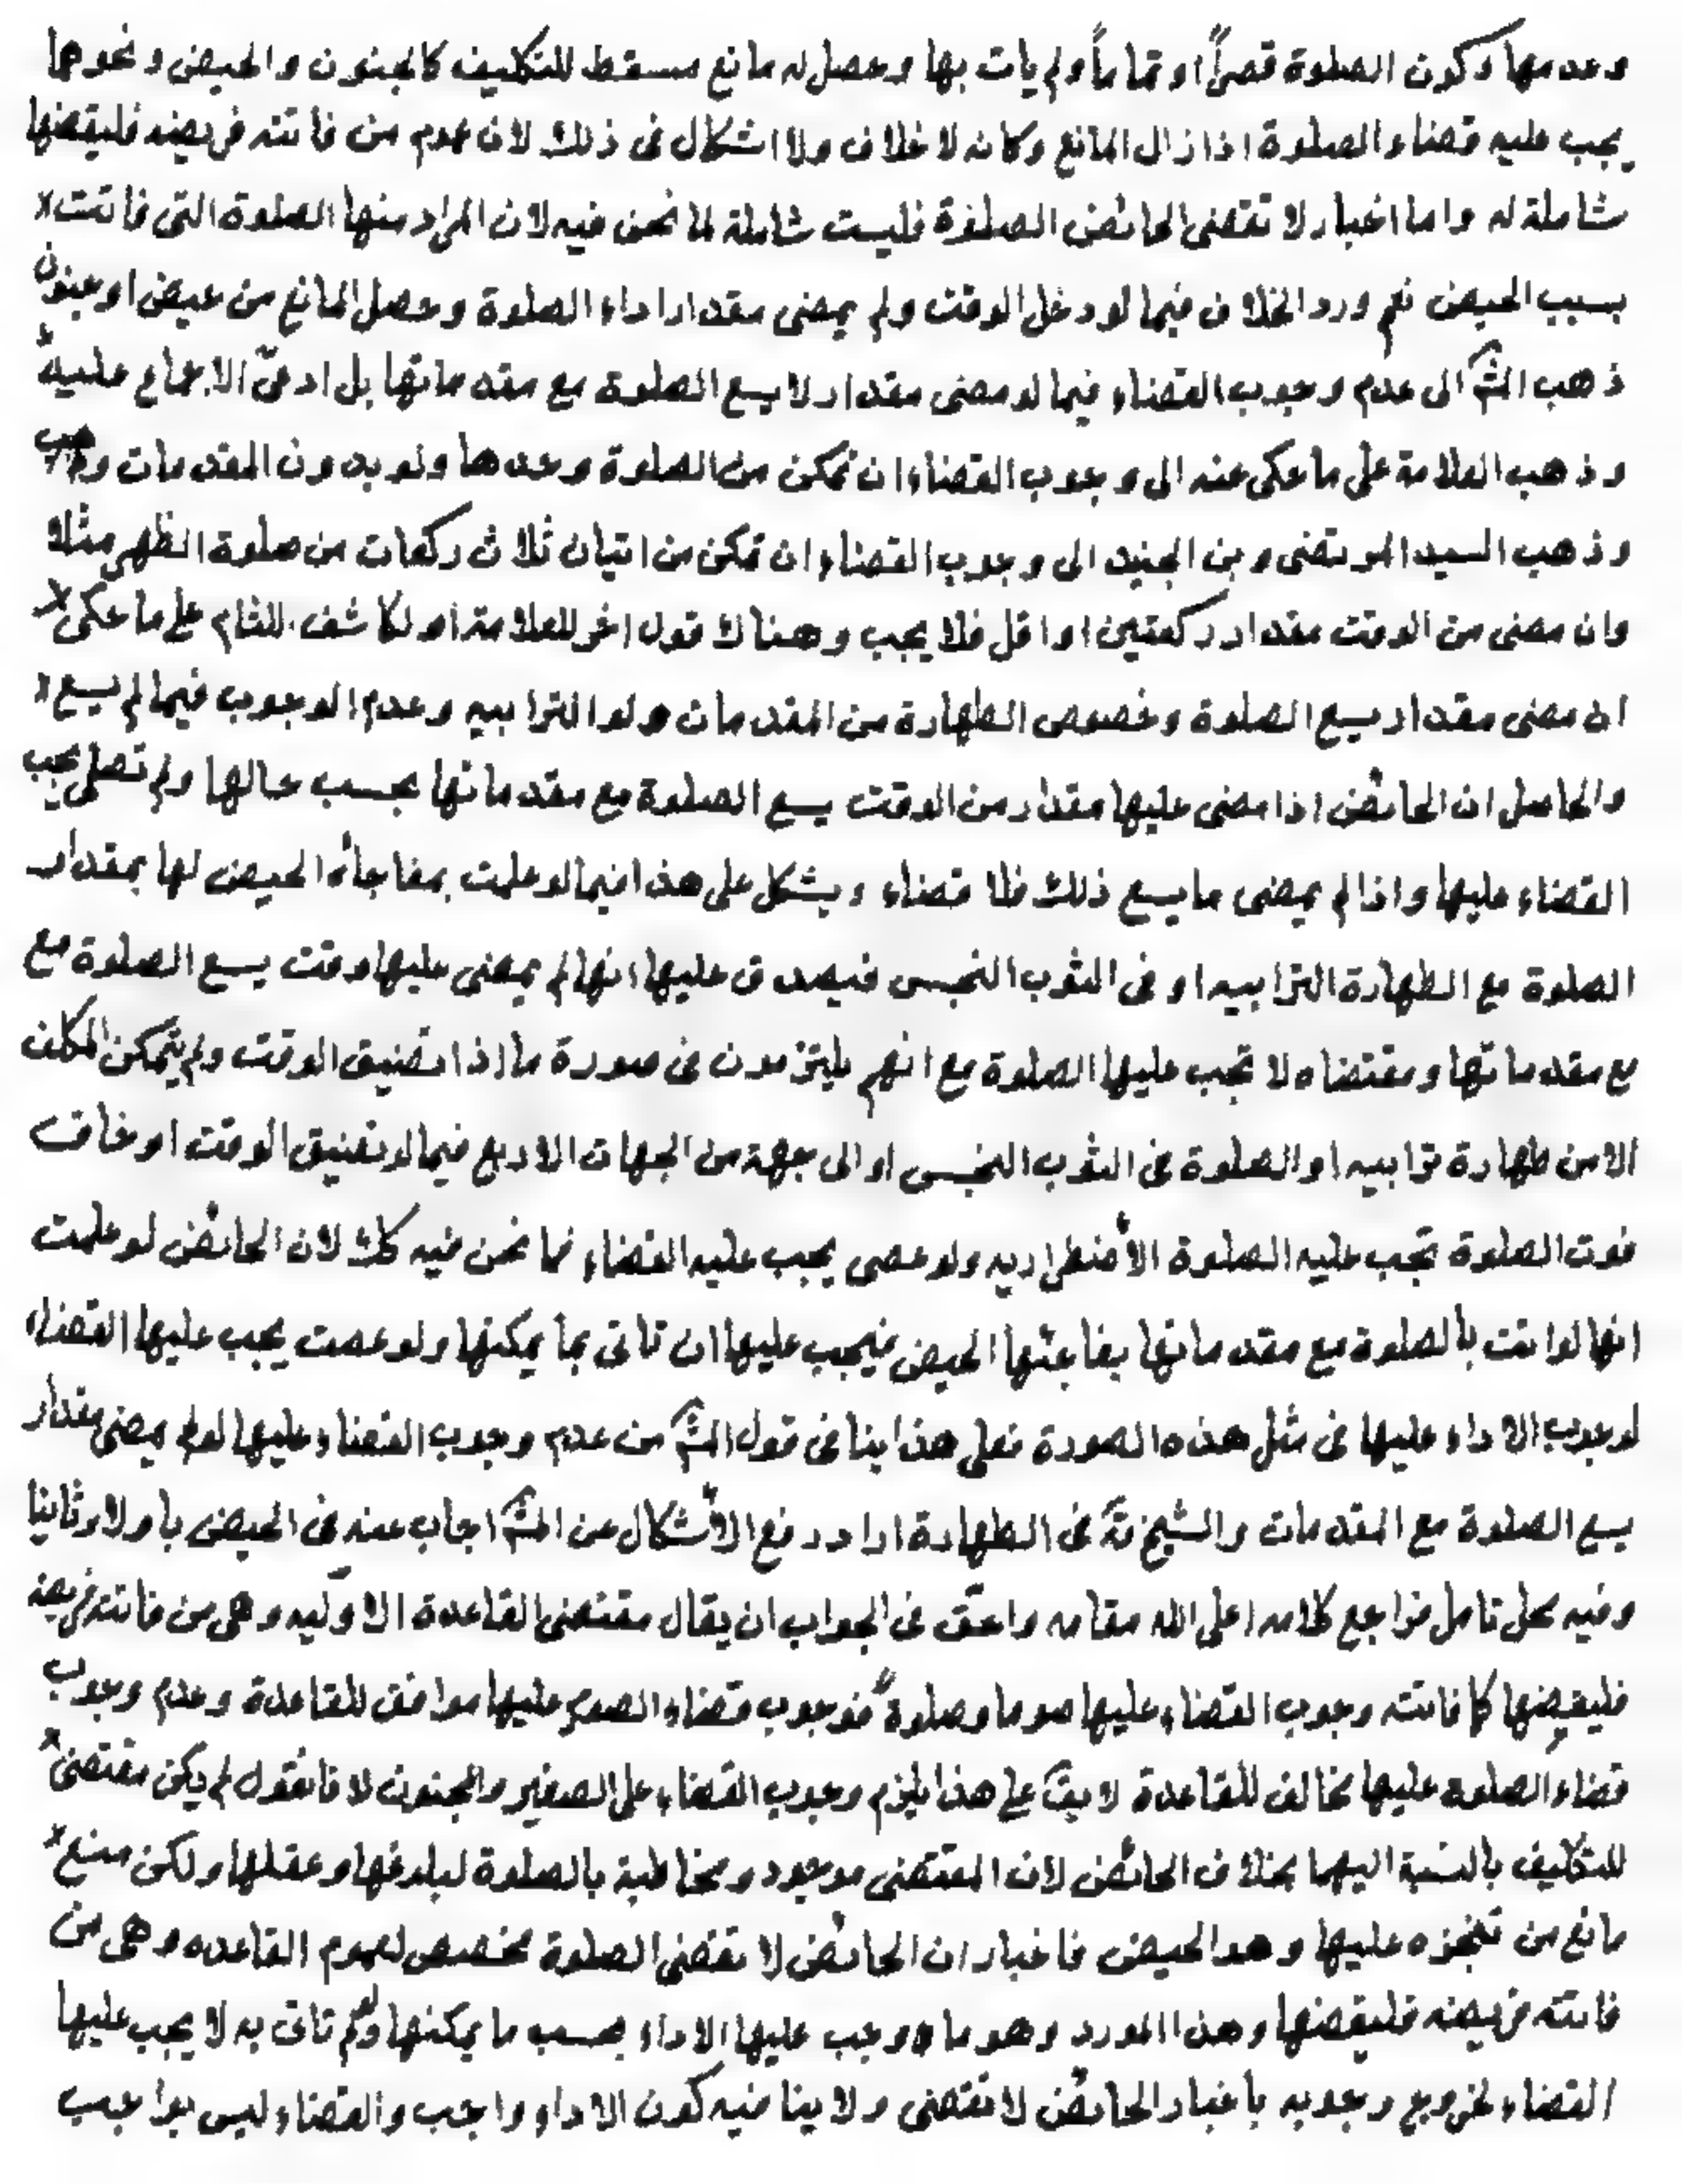 وعدمها وكون الصلوة قصراً او تماماً ولم يات بها وحصل له مانع مسقط للتكليف كالجنون والحيض ونحوها
يجب عليه قضاء الصلوة اذا زال المانع وكانه لا خلاف ولا اشكال فى ذلك لان عموم من فاتته فريضه فليقضها
شاملة له واما اخبار لا تقضى الحائض الصلوة فليست شاملة لما نحن فيه لان المراد منها الصلوة التى فاتت
بسبب الحيض نعم ورد الخلاف فيما لو دخل الوقت ولم يمضى مقدار اداء الصلوة وحصل المانع من حيض او جنون
ذهب المش الى عدم وجوب القضاء فيما لو مضى مقدار لا يسع الصلوة مع مقدماتها بل ادعى الاجماع عليه
وذهب العلامة على ما حكى عنه الى وجوب القضاء ان تمكن من الصلوة وحدها ولو بدون المقدمات وذهب
وذهب السيد المرتضى وبن الجنيد الى وجوب القضاء ان تمكن من اتيان ثلاث ركعات من صلوة الظهر مثلا
وان مضى من الوقت مقدار ركعتين او اقل فلا يجب وهناك قول اخر للعلامة او لكاشف اللثام على ما حكى
ان مضى مقدار يسع الصلوة وخصوص الطهارة من المقدمات ولو الترابيه وعدم الوجوب فيما لم يسع
والحاصل ان الحائض اذا مضى عليها مقدار من الوقت يسع الصلوة مع مقدماتها بحسب حالها ولم تصلى يجب
القضاء عليها واذا لم يمضى ما يسع ذلك فلا قضاء ويشكل على هذا فيما لو علمت بمفاجأة الحيض لها بمقدار
الصلوة مع الطهارة الترابيه او فى الثوب النجس فيصدق عليها انها لم يمضى عليها وقت يسع الصلوة مع
مع مقدماتها ومقتضاه لا تجب عليها الصلوة مع انهم يلتزمون فى صورة ما اذا تضيق الوقت ولم يتمكن المكلف
الا من طهارة ترابيه او الصلوة فى الثوب النجس او الى جهة من الجهات الاربع فيما لو تضيق الوقت او خاف
فوت الصلوة تجب عليه الصلوة الأضطراريه ولو عصى يجب عليه القضاء فما نحن فيه كك لان الحائض لو علمت
انها لو اتت بالصلوة مع مقدماتها يفاجئها الحيض فيجب عليها ان تاتى بما يمكنها ولو عصت يجب عليها القضاء
لوجوب الاداء عليها فى مثل هذه الصورة فعلى هذا ينافى قول المش من عدم وجوب القضاء عليها لو لم يمضى مقدار
يسع الصلوة مع المقدمات والشيخ قدّ فى الطهارة اراد دفع الأشكال عن المش اجاب عنه فى الحيض باولا وثانيا
وفيه محل تامل فراجع كلامه اعلى الله مقامه واحق فى الجواب ان يقال مقتضى القاعدة الاوّليه وهى من فاتته فريضه
فليقضها كما فاتته وجوب القضاء عليها صوما وصلوةً فوجوب قضاء الصوم عليها موافق للقاعدة وعدم وجوب
قضاء الصلوه عليها مخالف للقاعدة لا يقّ على هذا يلزم وجوب القضاء على الصغير والمجنون لانا نقول لم يكن مقتضى
للتكليف بالنسبة اليهما بخلاف الحائض لان المقتضى موجود ومخاطبة بالصلوة لبلوغها وعقلها ولكن منع
مانع من تنجزه عليها وهو الحيض فاخبار ان الحائض لا تقضى الصلوة مخصص لعموم القاعده وهى من
فاتته فريضه فليقضها وهذا المورد وهو ما وجب عليها الاداء بحسب ما يمكنها ولو لم تاتى به لا يجب عليها
القضاء لخروج وجوبه باخبار الحائض لا تقضى ولا ينافيه كون الاداء واجب والقضاء ليس بواجب